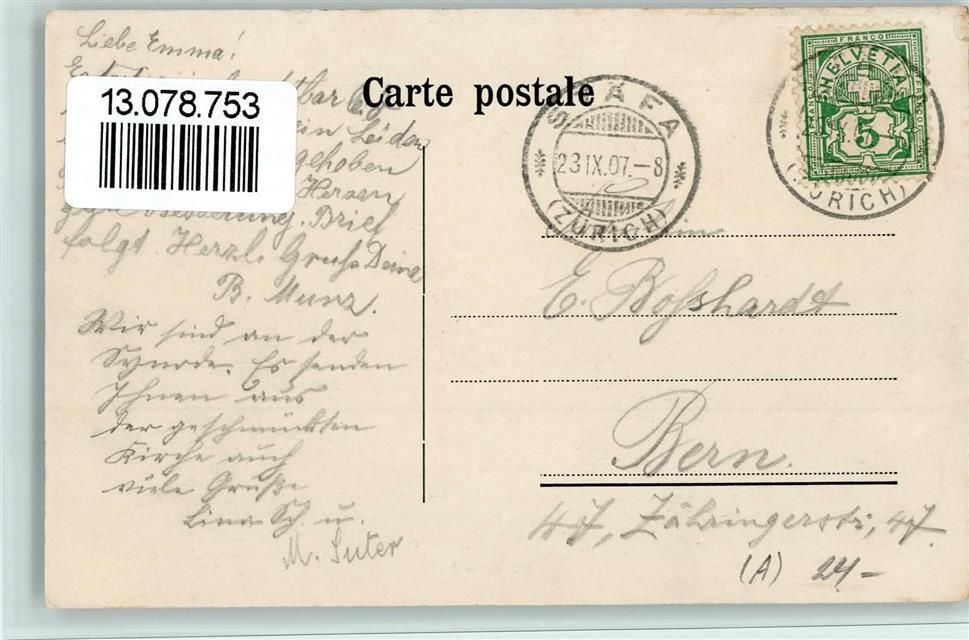 Liebe Emma!
13.078.753
bar
ein Leiden
gehoben
Herzen
Besserung. Brief
folgt. Herzl. Gruss Deine
B. Munz.
Wir sind an der
Synode. Es senden
Ihnen aus
der geschmückten
Kirche auch
viele Grüße
Lina Sch. u.
M. Suter
Carte postale
STÄFA
23 IX.07.-8
(ZÜRICH)
FRANCO
HELVETIA
5
(ZÜRICH)
E. Bosshardt
Bern.
47, Zähringerstr, 47
(A) 24-